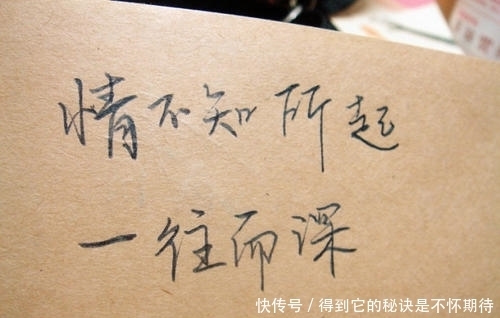 情不知所起
一往而深
快传号/得到它的秘诀是不怀期待